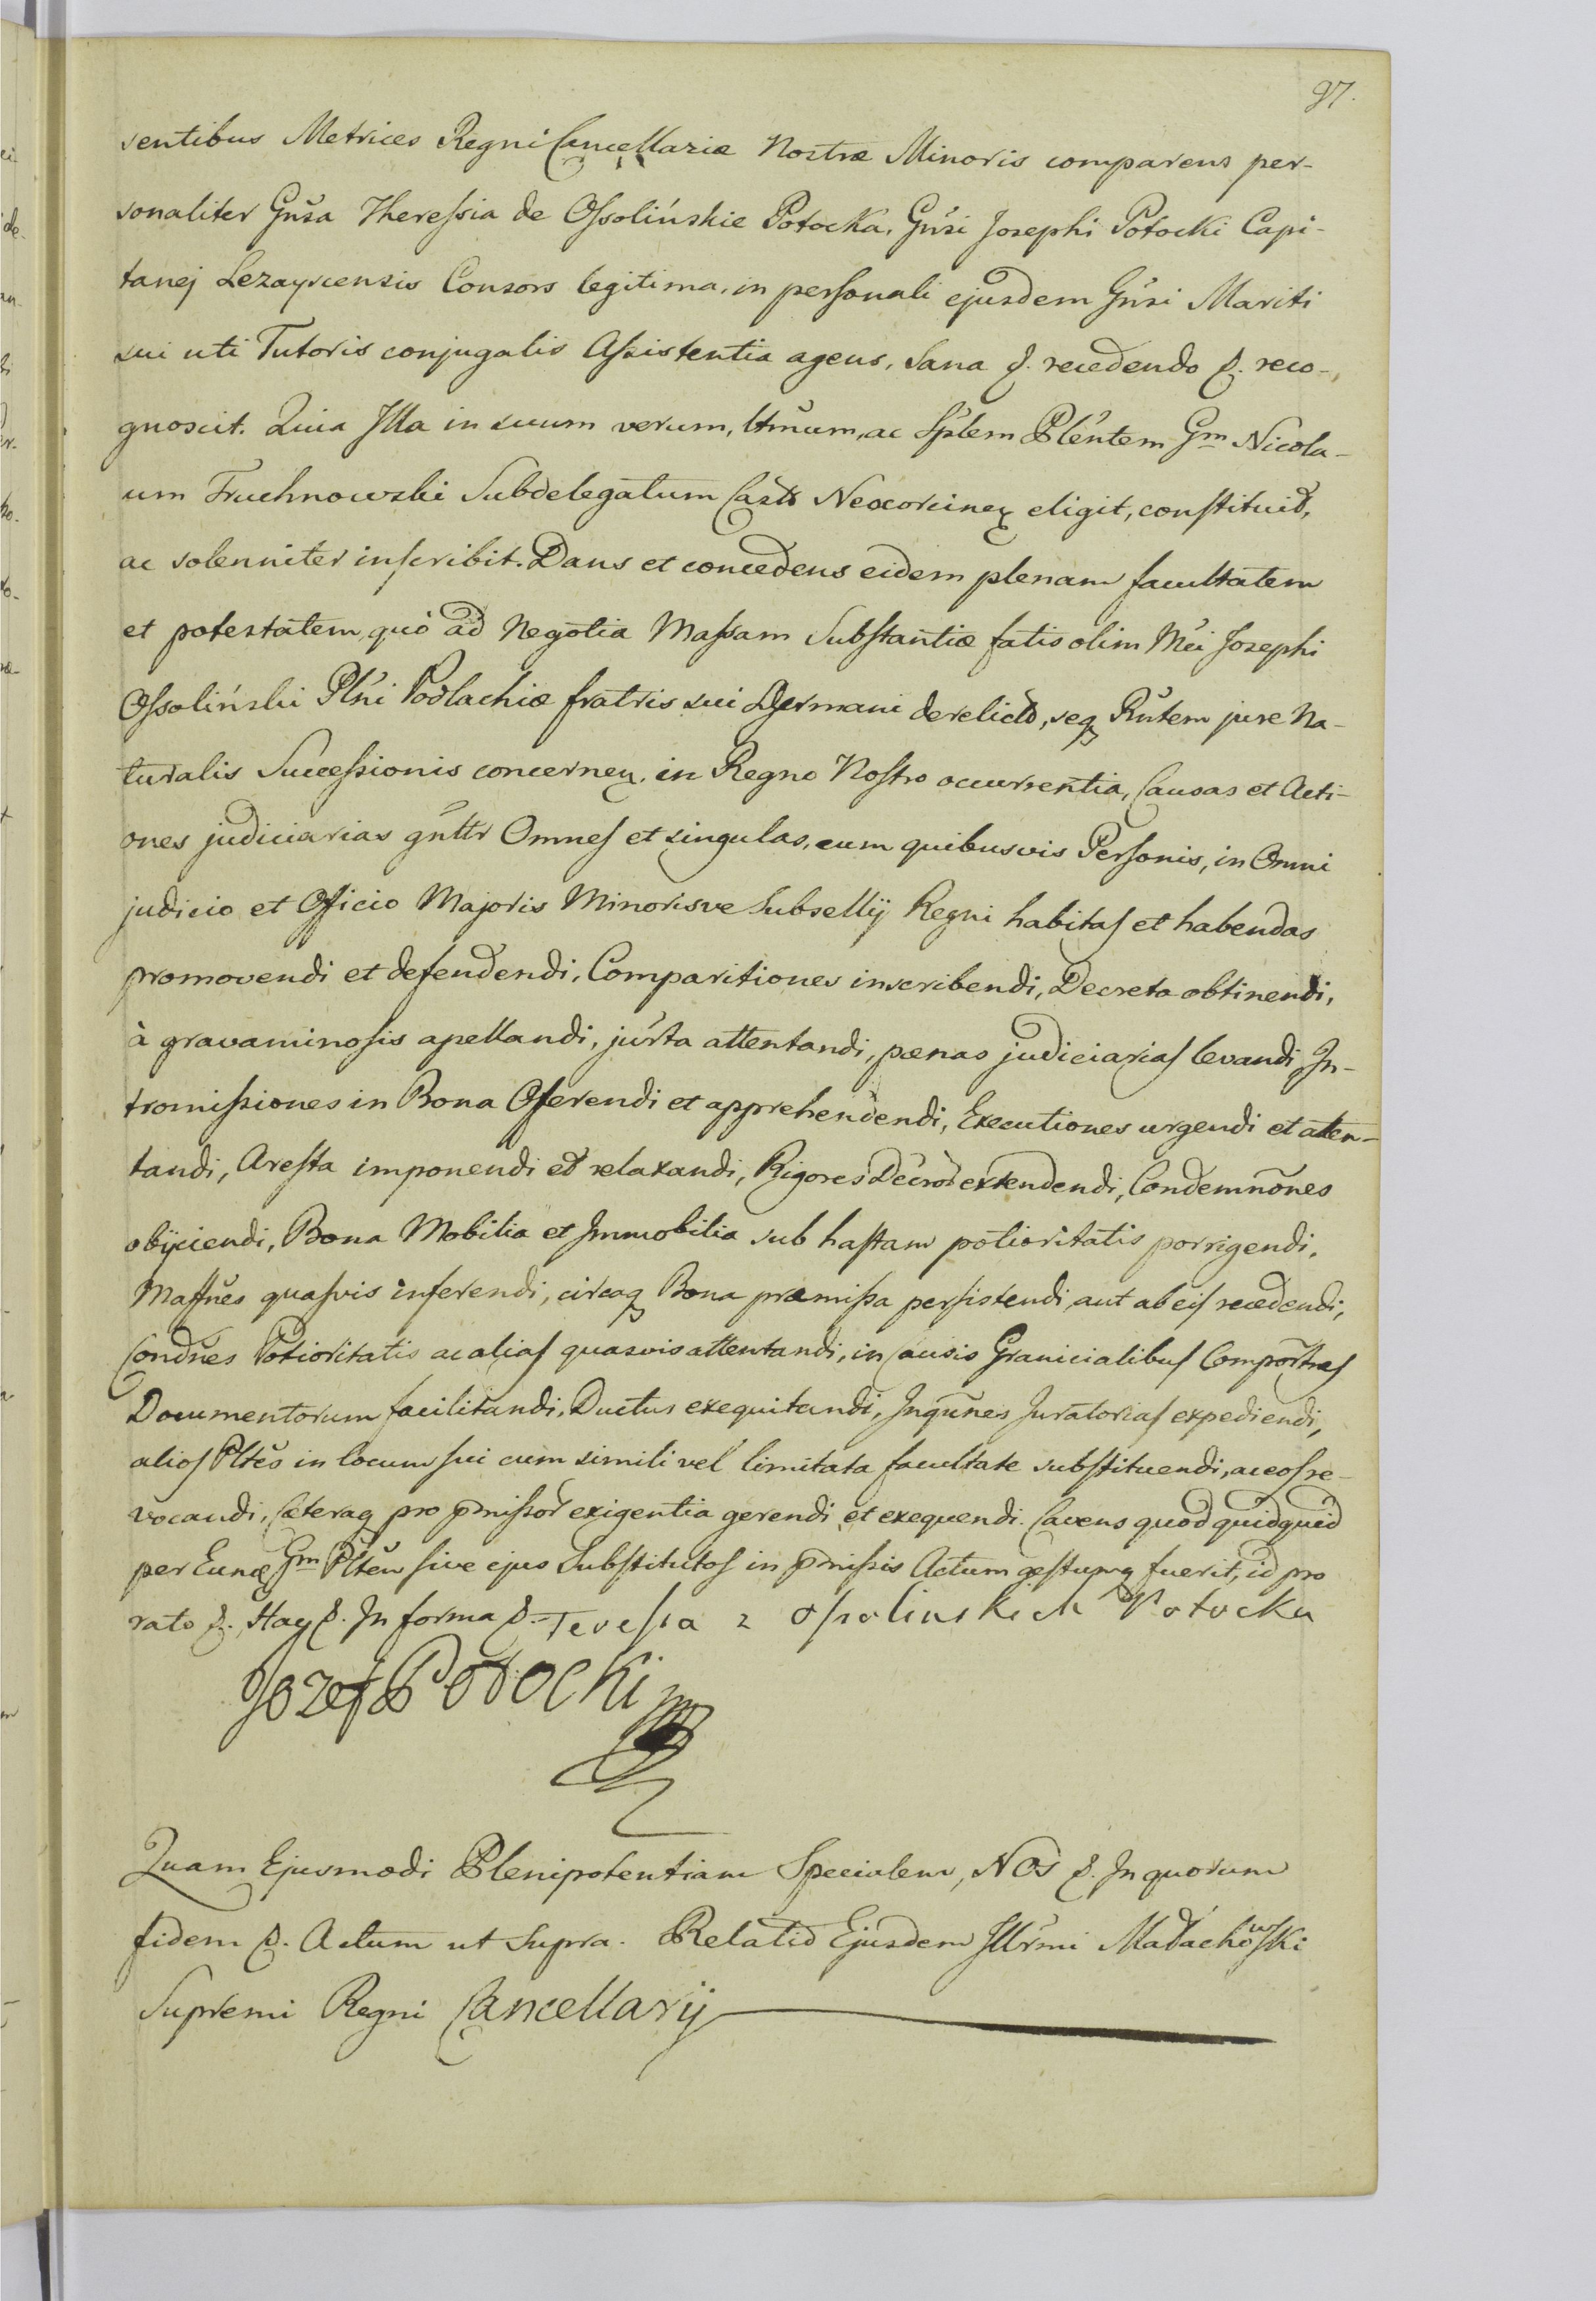 97.
sentibus Metrices Regni Cancellariæ Nostræ Minoris comparens per-
sonaliter Gnsa Theressia de Ossolińskie Potocka, Gnsi Josephi Potocki Capi-
tanej Lezayscensis Consors legitima, in personali ejusdem Gnsi Mariti
sui uti Tutoris conjugalis Assistentia agens, Sana &. recedendo &. reco-
gnoscit. Quia Illa in suum verum, ltmum, ac Splem Plentem Gm Nicola-
um Truchnowski Subdelegatum Castr Neocorcinen eligit, constituit,
ac solenniter inscribit. Dans et concedens eidem plenam facultatem
et potestatem, quò ad Negotia Massam Substantiæ fatis olim Mci Josephi
Ossoliński Plni Podlachiæ fratris sui Germani derelictæ, seq Rntem jure Na-
turalis Successionis concernen. in Regno Nostro occurrentia, Causas et Acti-
ones judiciarias gnltr Omnes et singulas, cum quibusvis Personis, in Omni
judicio et Officio Majoris Minorisve Subsellij Regni habitas et habendas
promovendi et defendendi, Comparitiones inscribendi, Decreta obtinendi,
à gravaminosis apellandi, jurta attentandi, pænas judiciarias levandi, In-
tromissiones in Bona Oferendi et apprehendendi, Executiones urgendi et atten-
tandi, Aresta imponendi et relaxandi, Rigores Decror extendendi, Condemnões
obijciendi, Bona Mobilia et Immobilia sub hastam potioritatis porrigendi,
Massnes quasvis inferendi, circaq Bona præmissa persistendi aut ab eis recedendi,
Condnes Potioritatis ac alias quasvis attentandi, in Causis Granicialibus Comportnes
Documentorum facilitandi, Ductus exequitandi, Inqunes Juratorias expediendi,
alios Pltes in locum sui cum simili vel limitata facultate substituendi, ac eos re-
vocandi, Cæteraq pro pmissor exigentia gerendi et exequendi. Cavens quod quidquid
per Eund Gm Plten sive ejus Substitutos in pmissis Actum gestumq fuerit, id pro
rato &. Hac &. In forma &.- Teressa z Ossolinskich Potocka
Jozef Potocki mp
Quam Ejusmodi Plenipotentiam Specialem, NOS &. In quorum
fidem &. Actum ut Supra. Relatio Ejusdem Illrmi Małachowski
Supremi Regni Cancellarij